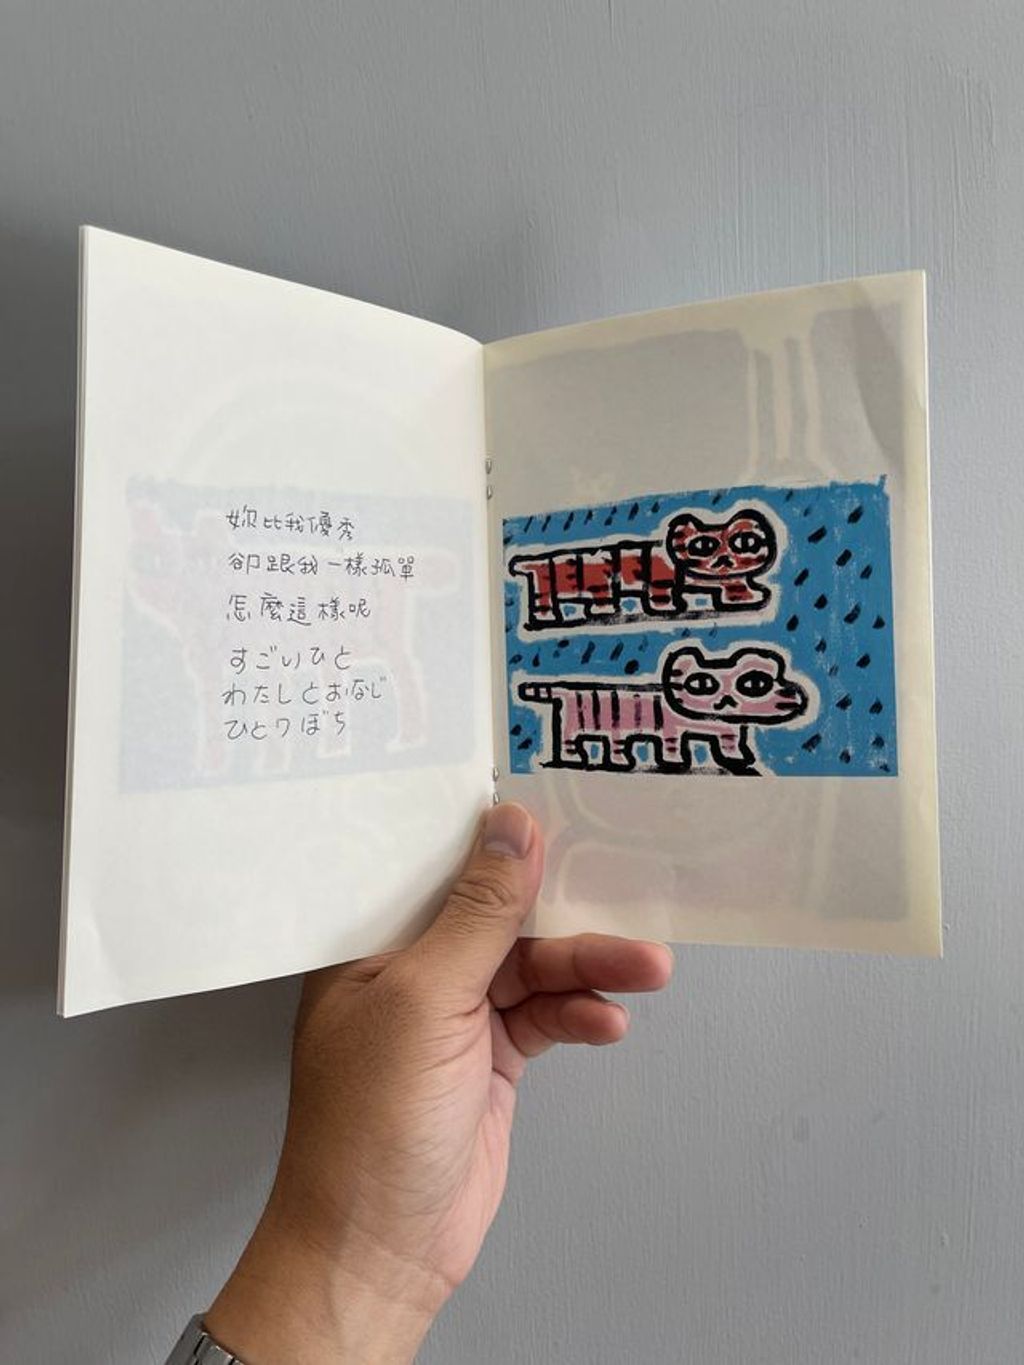 妳比我優秀
卻跟我一樣孤單
怎麼這樣呢
すごいひと
わたしとおなじ
ひとりぼち